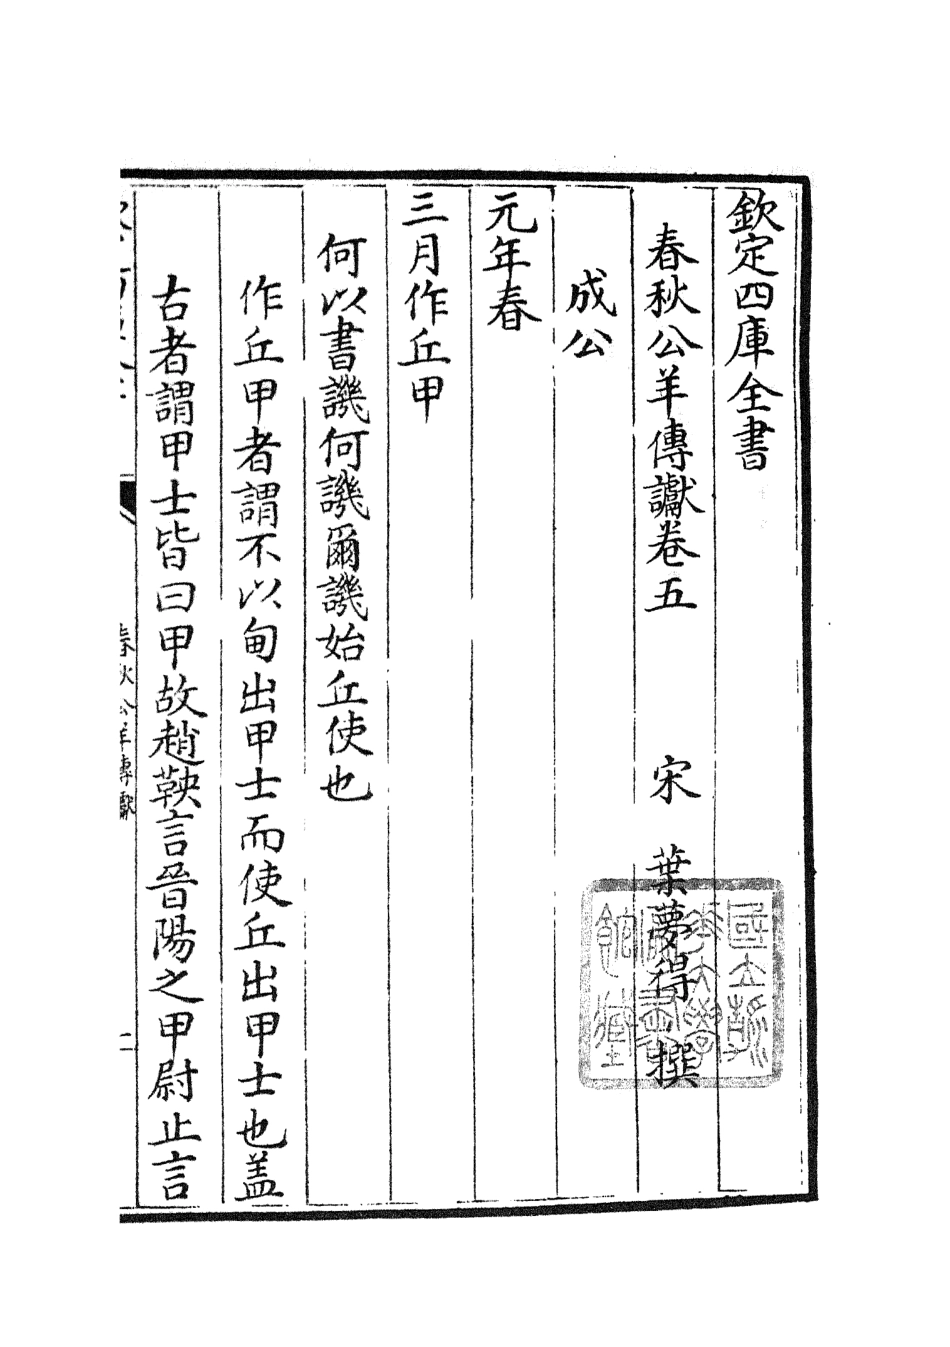 欽定四庫全書
春秋公羊傳讞卷五　宋　葉夢得　撰
成公
元年春
三月作丘甲
何以書譏何譏爾譏始丘使也
作丘甲者謂不以甸出甲士而使丘出甲士也盖
古者謂甲士皆曰甲故趙鞅言晉陽之甲尉止言
春秋公羊傳讞
國立浙江大學圖書館藏